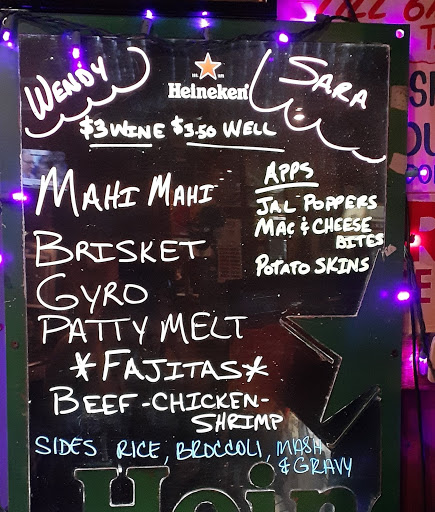 WENDY
Heineken
SARA
$3 WINE $3.50 WELL
MAHI MAHI
BRISKET
GYRO
PATTY MELT
*FAJITAS*
BEEF-CHICKEN-
SHRIMP
APPS
JAL POPPERS
MAC & CHEESE
BITES
POTATO SKINS
SIDES RICE, BROCCOLI, MASH
& GRAVY
Hein